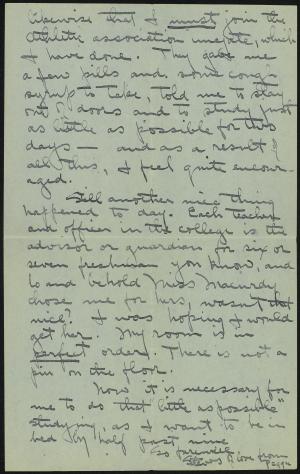 likewise that I must join the
Athletic association instate, which
I have done. They gave me
a few pills and some cough
syrup to take, told me to stay
out of doors and to study just
as little as possible for two
days — and as a result of
all this, I feel quite encour-
aged.
Still another nice thing
happened to day. Each teacher
and officer in the college is the
advisor or guardian for six or
seven freshman you know, and
lo and behold Miss Macurdy
chose me for hers, wasn't that
nice? I was hoping I would
get her. My room is in
perfect order. There is not a
pin on the floor.
Now it is necessary for
me to do that "little as possible"
studying, as I want to be in
bed by half past nine
So farewell
of love from
Peggy